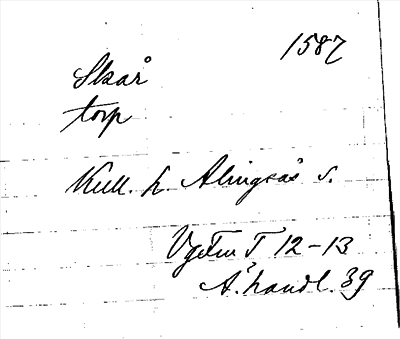 1587
Skår
torp
Kull. h. Alingsås s.
Vgötm T 12-13
Ä. handl. 39